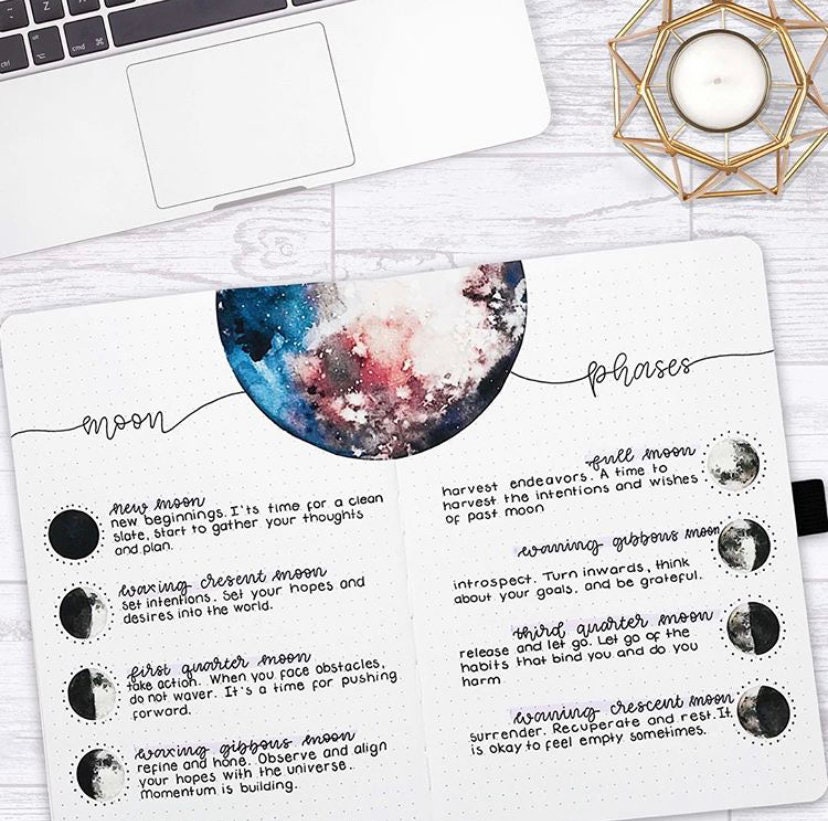 Z
X
alt
ctrl
cmd
⌘
moon
phases
new moon
new beginnings. I'ts time for a clean
slate, start to gather your thoughts
and plan.
waxing cresent moon
set intentions. Set your hopes and
desires into the world.
first quarter moon
take action. When you face obstacles,
do not waver. It's a time for pushing
forward.
waxing gibbous moon
refine and hone. Observe and align
your hopes with the universe.
Momentum is building.
full moon
harvest endeavors. A time to
harvest the intentions and wishes
of past moon
waning gibbous moon
introspect. Turn inwards, think
about your goals, and be grateful.
third quarter moon
release and let go. Let go of the
habits that bind you and do you
harm
waning crescent moon
surrender. Recuperate and rest. It
is okay to feel empty sometimes.